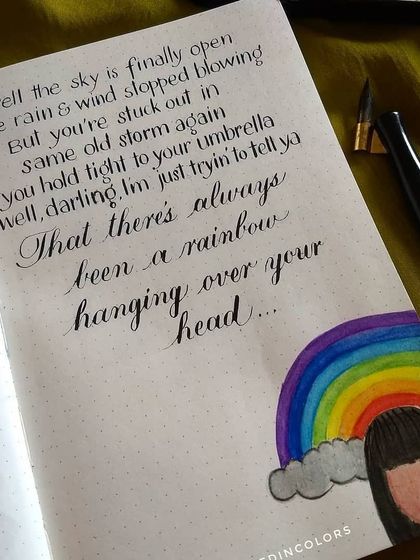 ell the sky is finally open
e rain & wind stopped blowing
But you're stuck out in
same old storm again
you hold tight to your umbrella
well, darling, I'm just tryin' to tell ya
That there's always
been a rainbow
hanging over your
head...
EDINCOLORS